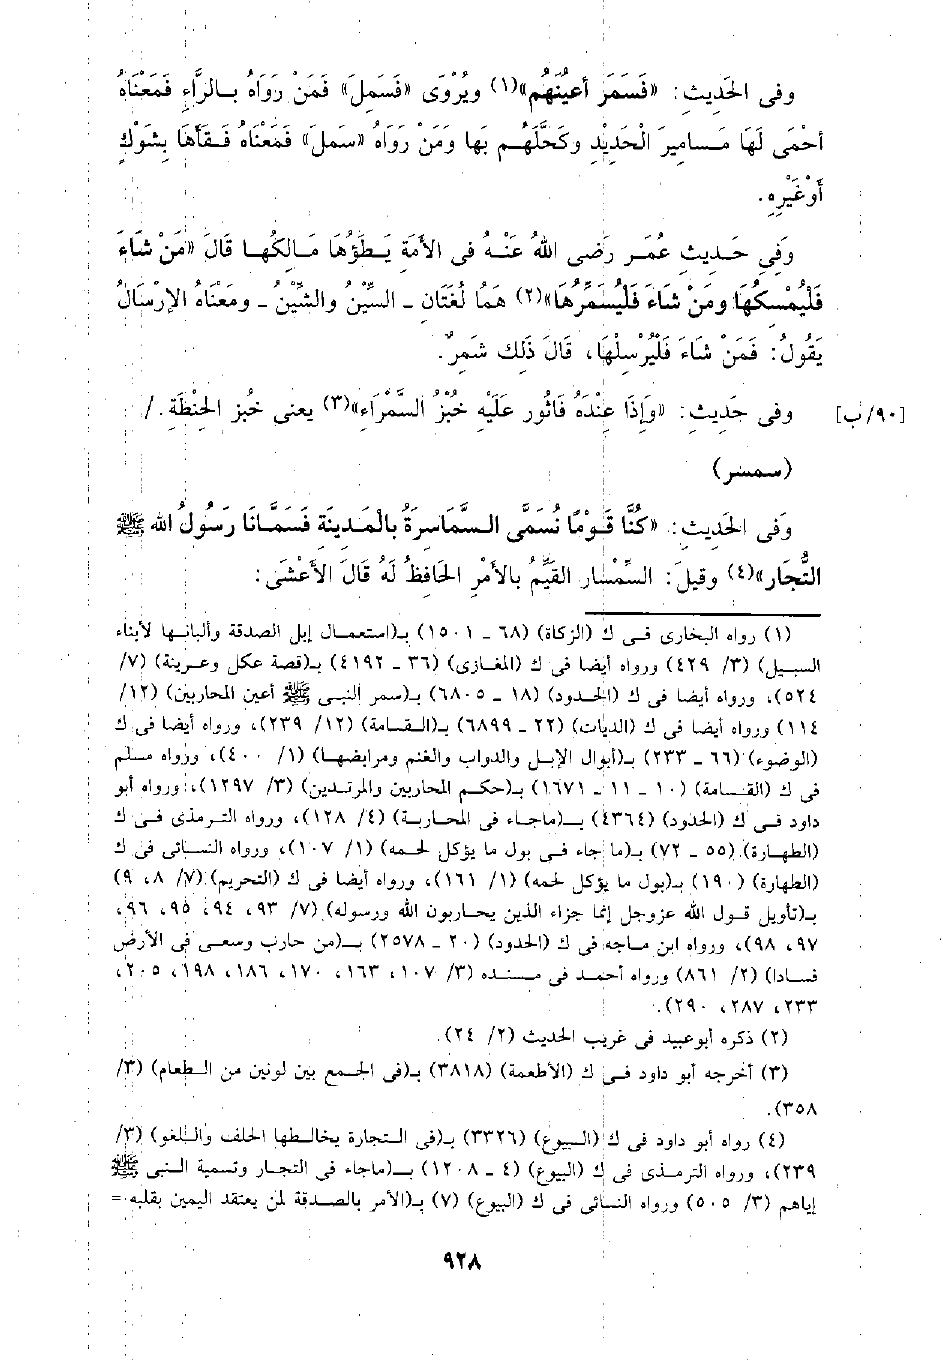 وفى الحَديث: «فَسَمَرَ أعينَهُم»(١) ويُرْوَى «فَسَمِلَ» فَمَنْ رَوَاهُ بالرَّاءِ فَمَعْنَاهُ
أحْمَى لَهَا مَسامِيرَ الْحَدِيدِ وكَحَّلَهُم بها ومَنْ رَوَاهُ «سَملَ» فَمَعْنَاهُ فَقأهَا بِشَوْكٍ
أوْ غَيْرِهِ.
وَفِي حَديثِ عُمَر رَضى اللهُ عَنْهُ فى الأمَةِ يَطَؤُهَا مَالِكُها قَالَ «مَنْ شَاءَ
فَلْيُمْسِكُهَا ومَنْ شَاءَ فَلْيُسَمِّرُهَا»(٢) هَمُا لُغَتَانِ ـ السِّيْنُ والشِّيْنُ ـ ومَعْنَاهُ الإرْسَالُ
يَقُولُ: فَمَنْ شَاءَ فَلْيُرْسِلْهَا، قَالَ ذَلِكَ شَمرٌ.
[٩٠/ب] وفى حَديث: «وَإذَا عِنْدَهُ فَاثُور عَلَيْهِ خُبْزُ السَّمْرَاءِ»(٣) يعنى خُبز الحِنْطَةِ. /
(سمسر)
وَفى الحَديث: «كُنَّا قَومًا نُسَمَّى السَّمَاسرَةُ بالمَدِينَةِ فَسَمَّانَا رَسُولُ الله ﷺ
التُّجَار»(٤) وقيلَ: السِّمْسَار القَيِّمُ بالأمْرِ الحَافظُ لَهُ قَالَ الأعْشَى:
(١) رواه البخارى فى ك (الزكاة) (٦٨ ـ ١٥٠١) بـ(استعمال إبل الصدقة وألبانها لأبناء
السبيل) (٣/ ٤٢٩) ورواه أيضا فى ك (المغازى) (٣٦ ـ ٤١٩٢) بـ(قصة عكل وعرينة) (٧/
٥٢٤)، ورواه أيضا فى ك (الحدود) (١٨ ـ ٦٨٠٥) بـ(سمر النبى ﷺ أعين المحاربين) (١٢/
١١٤) ورواه أيضا فى ك (الديات) (٢٢ ـ ٦٨٩٩) بـ(القسامة) (١٢/ ٢٣٩)، ورواه أيضا فى ك
(الوضوء) (٦٦ ـ ٢٣٣) بـ(أبوال الإبل والدواب والغنم ومرابضها) (١/ ٤٠٠)، ورواه مسلم
فى ك (القسامة) (١٠ ـ ١١ ـ ١٦٧١) بـ(حكم المحاربين والمرتدين) (٣/ ١٢٩٧)، ورواه أبو
داود فى ك (الحدود) (٤٣٦٤) بـ(ماجاء فى المحاربة) (٤/ ١٢٨)، ورواه الترمذى فى ك
(الطهارة) (٥٥ ـ ٧٢) بـ(ما جاء فى بول ما يؤكل لحمه) (١/ ١٠٧)، ورواه النسائى فى ك
(الطهارة) (١٩٠) بـ(بول ما يؤكل لحمه) (١/ ١٦١)، ورواه أيضا فى ك (التحريم) (٧/ ٨، ٩)
بـ(تأويل قول الله عزوجل إنما جزاء الذين يحاربون الله ورسوله) (٧/ ٩٣، ٩٤، ٩٥، ٩٦،
٩٧، ٩٨)، ورواه ابن ماجه فى ك (الحدود) (٢٠ ـ ٢٥٧٨) بـ(من حارب وسعى فى الأرض
فسادا) (٢/ ٨٦١) ورواه أحمد فى مسنده (٣/ ١٠٧، ١٦٣، ١٧٠، ١٨٦، ١٩٨، ٢٠٥،
٢٣٣، ٢٨٧، ٢٩٠).
(٢) ذكره أبوعبيد فى غريب الحديث (٢/ ٢٤).
(٣) أخرجه أبو داود فى ك (الأطعمة) (٣٨١٨) بـ(فى الجمع بين لونين من الطعام) (٣/
٣٥٨).
(٤) رواه أبو داود فى ك (البيوع) (٣٣٢٦) بـ(فى التجارة يخالطها الحلف واللغو) (٣/
٢٣٩)، ورواه الترمذى فى ك (البيوع) (٤ ـ ١٢٠٨) بـ(ماجاء فى التجار وتسمية النبى ﷺ
إياهم (٣/ ٥٠٥) ورواه النسائى فى ك (البيوع) (٧) بـ(الأمر بالصدقة لمن يعتقد اليمين بقلبه =
٩٢٨